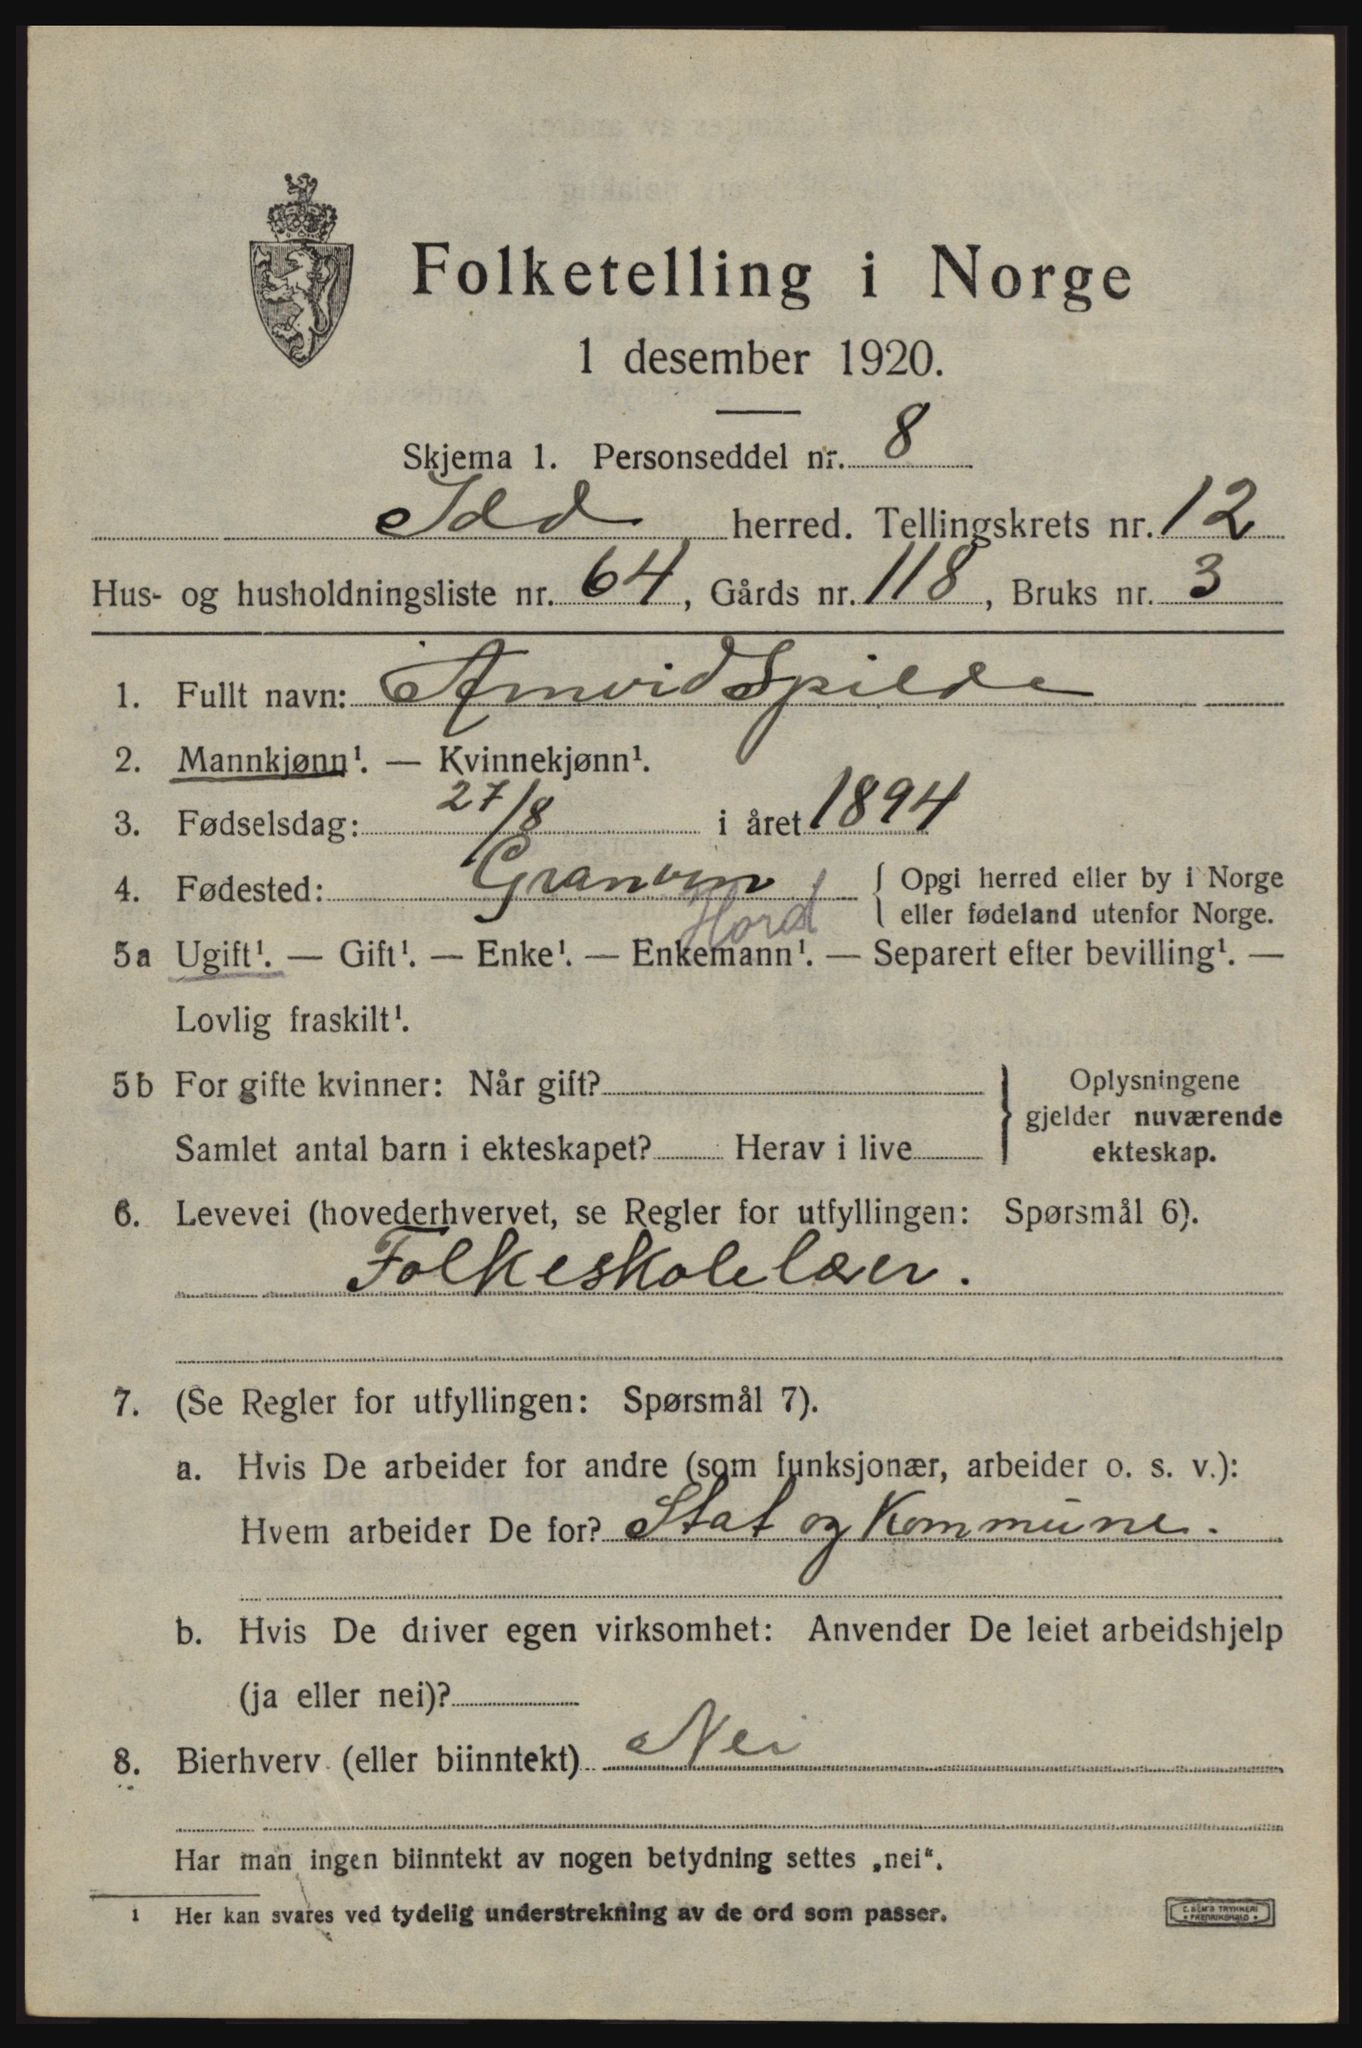 Folketelling i Norge
1 desember 1920.
Skjema 1. Personseddel nr. 8
Idd herred. Tellingskrets nr. 12
Hus- og husholdningsliste nr. 64, Gårds nr. 118, Bruks nr. 3
1. Fullt navn: Arnvid Spilde
2. Mannkjønn¹. — Kvinnekjønn¹.
3. Fødselsdag: 27/8 i året 1894
4. Fødested: Granvin { Opgi herred eller by i Norge
Hord eller fødeland utenfor Norge.
5a Ugift¹. — Gift¹. — Enke¹. — Enkemann¹. — Separert efter bevilling¹. —
Lovlig fraskilt¹.
5b For gifte kvinner: Når gift? } Oplysningene
gjelder nuværende
Samlet antal barn i ekteskapet? Herav i live ekteskap.
6. Levevei (hovederhvervet, se Regler for utfyllingen: Spørsmål 6).
Folkeskolelærer.
7. (Se Regler for utfyllingen: Spørsmål 7).
a. Hvis De arbeider for andre (som funksjonær, arbeider o. s. v.):
Hvem arbeider De for? Stat og Kommune.
b. Hvis De driver egen virksomhet: Anvender De leiet arbeidshjelp
(ja eller nei)?
8. Bierhverv (eller biinntekt) Nei
Har man ingen biinntekt av nogen betydning settes „nei“.
1 Her kan svares ved tydelig understrekning av de ord som passer.
TRYKKERI
FREDRIKSHALD